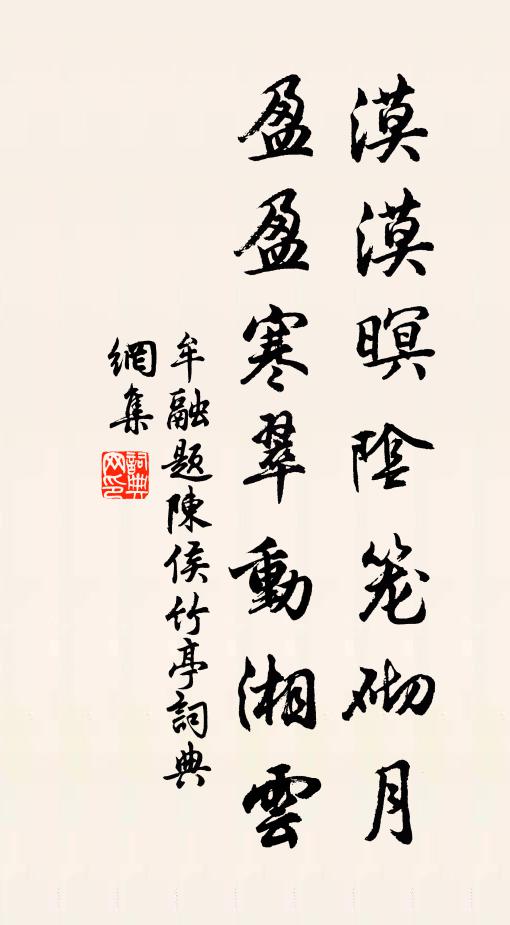 漠漠暝陰笼砌月
盈盈寒翠動湘雲
牟融題陳侯竹亭詞典
網集
詞典
网印